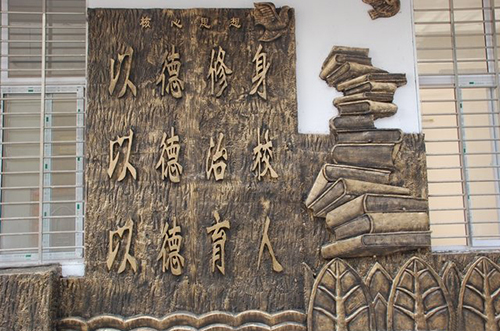 核心思想
以德修身
以德治校
以德育人